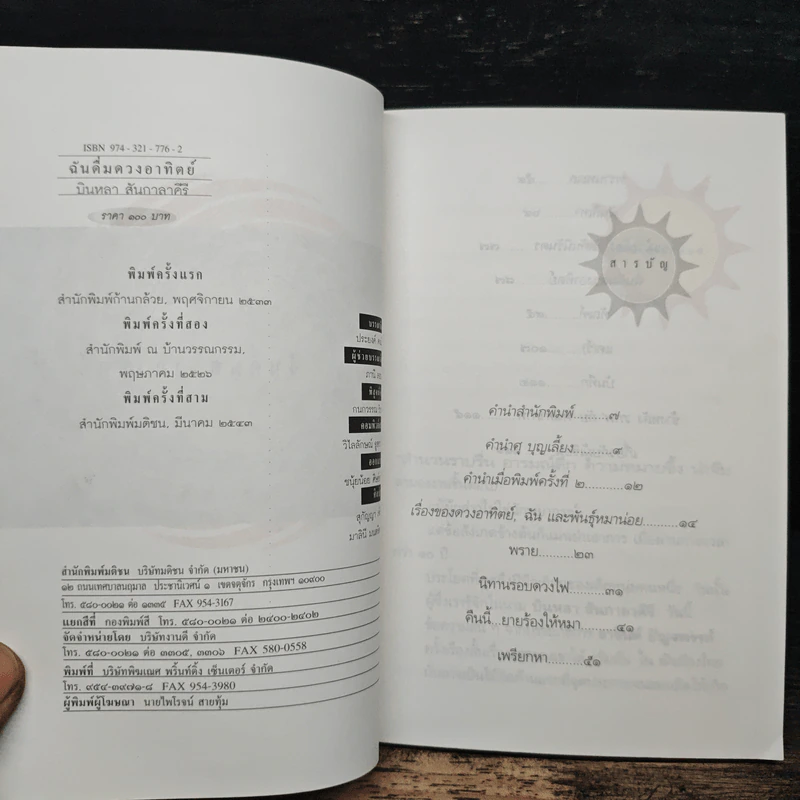 ISBN 974 - 321 - 776 - 2
ฉันดื่มดวงอาทิตย์
บินหลา สันกาลาคีรี
ราคา ๑๐๐ บาท
พิมพ์ครั้งแรก
สำนักพิมพ์ก้านกล้วย, พฤศจิกายน ๒๕๓๓
พิมพ์ครั้งที่สอง
สำนักพิมพ์ ณ บ้านวรรณกรรม,
พฤษภาคม ๒๕๒๖
พิมพ์ครั้งที่สาม
สำนักพิมพ์มติชน, มีนาคม ๒๕๔๓
ประยงค์
ภานี
กนกวรรณ
วิไลลักษณ์
ชนุ้ยน้อย
สุกัญญา
มาลินี
สำนักพิมพ์มติชน บริษัทมติชน จำกัด (มหาชน)
๑๒ ถนนเทศบาลนฤมาล ประชานิเวศน์ ๑ เขตจตุจักร กรุงเทพฯ ๑๐๙๐๐
โทร. ๕๘๐-๐๐๒๑ ต่อ ๑๓๓๕ FAX 954-3167
แยกสีที่ กองพิมพ์สี โทร. ๕๘๐-๐๐๒๑ ต่อ ๒๔๐๐-๒๔๐๒
จัดจำหน่ายโดย บริษัทงานดี จำกัด
โทร. ๕๘๐-๐๐๒๑ ต่อ ๓๓๐๕, ๓๓๐๖ FAX 580-0558
พิมพ์ที่ บริษัทพิฆเณศ พริ้นท์ติ้ง เซ็นเตอร์ จำกัด
โทร. ๙๕๔-๓๙๗๑-๘ FAX 954-3980
ผู้พิมพ์ผู้โฆษณา นายไพโรจน์ สายทุ้ม
สารบัญ
คำนำสำนักพิมพ์..........๗
คำนำศุ บุญเลี้ยง..........๙
คำนำเมื่อพิมพ์ครั้งที่ ๒..........๑๒
เรื่องของดวงอาทิตย์, ฉัน และพันธุ์หมาน่อย..........๑๔
พราย.........๒๓
นิทานรอบดวงไฟ..........๓๑
คืนนี้...ยายร้องให้หมา..........๔๑
เพรียกหา..........๕๑